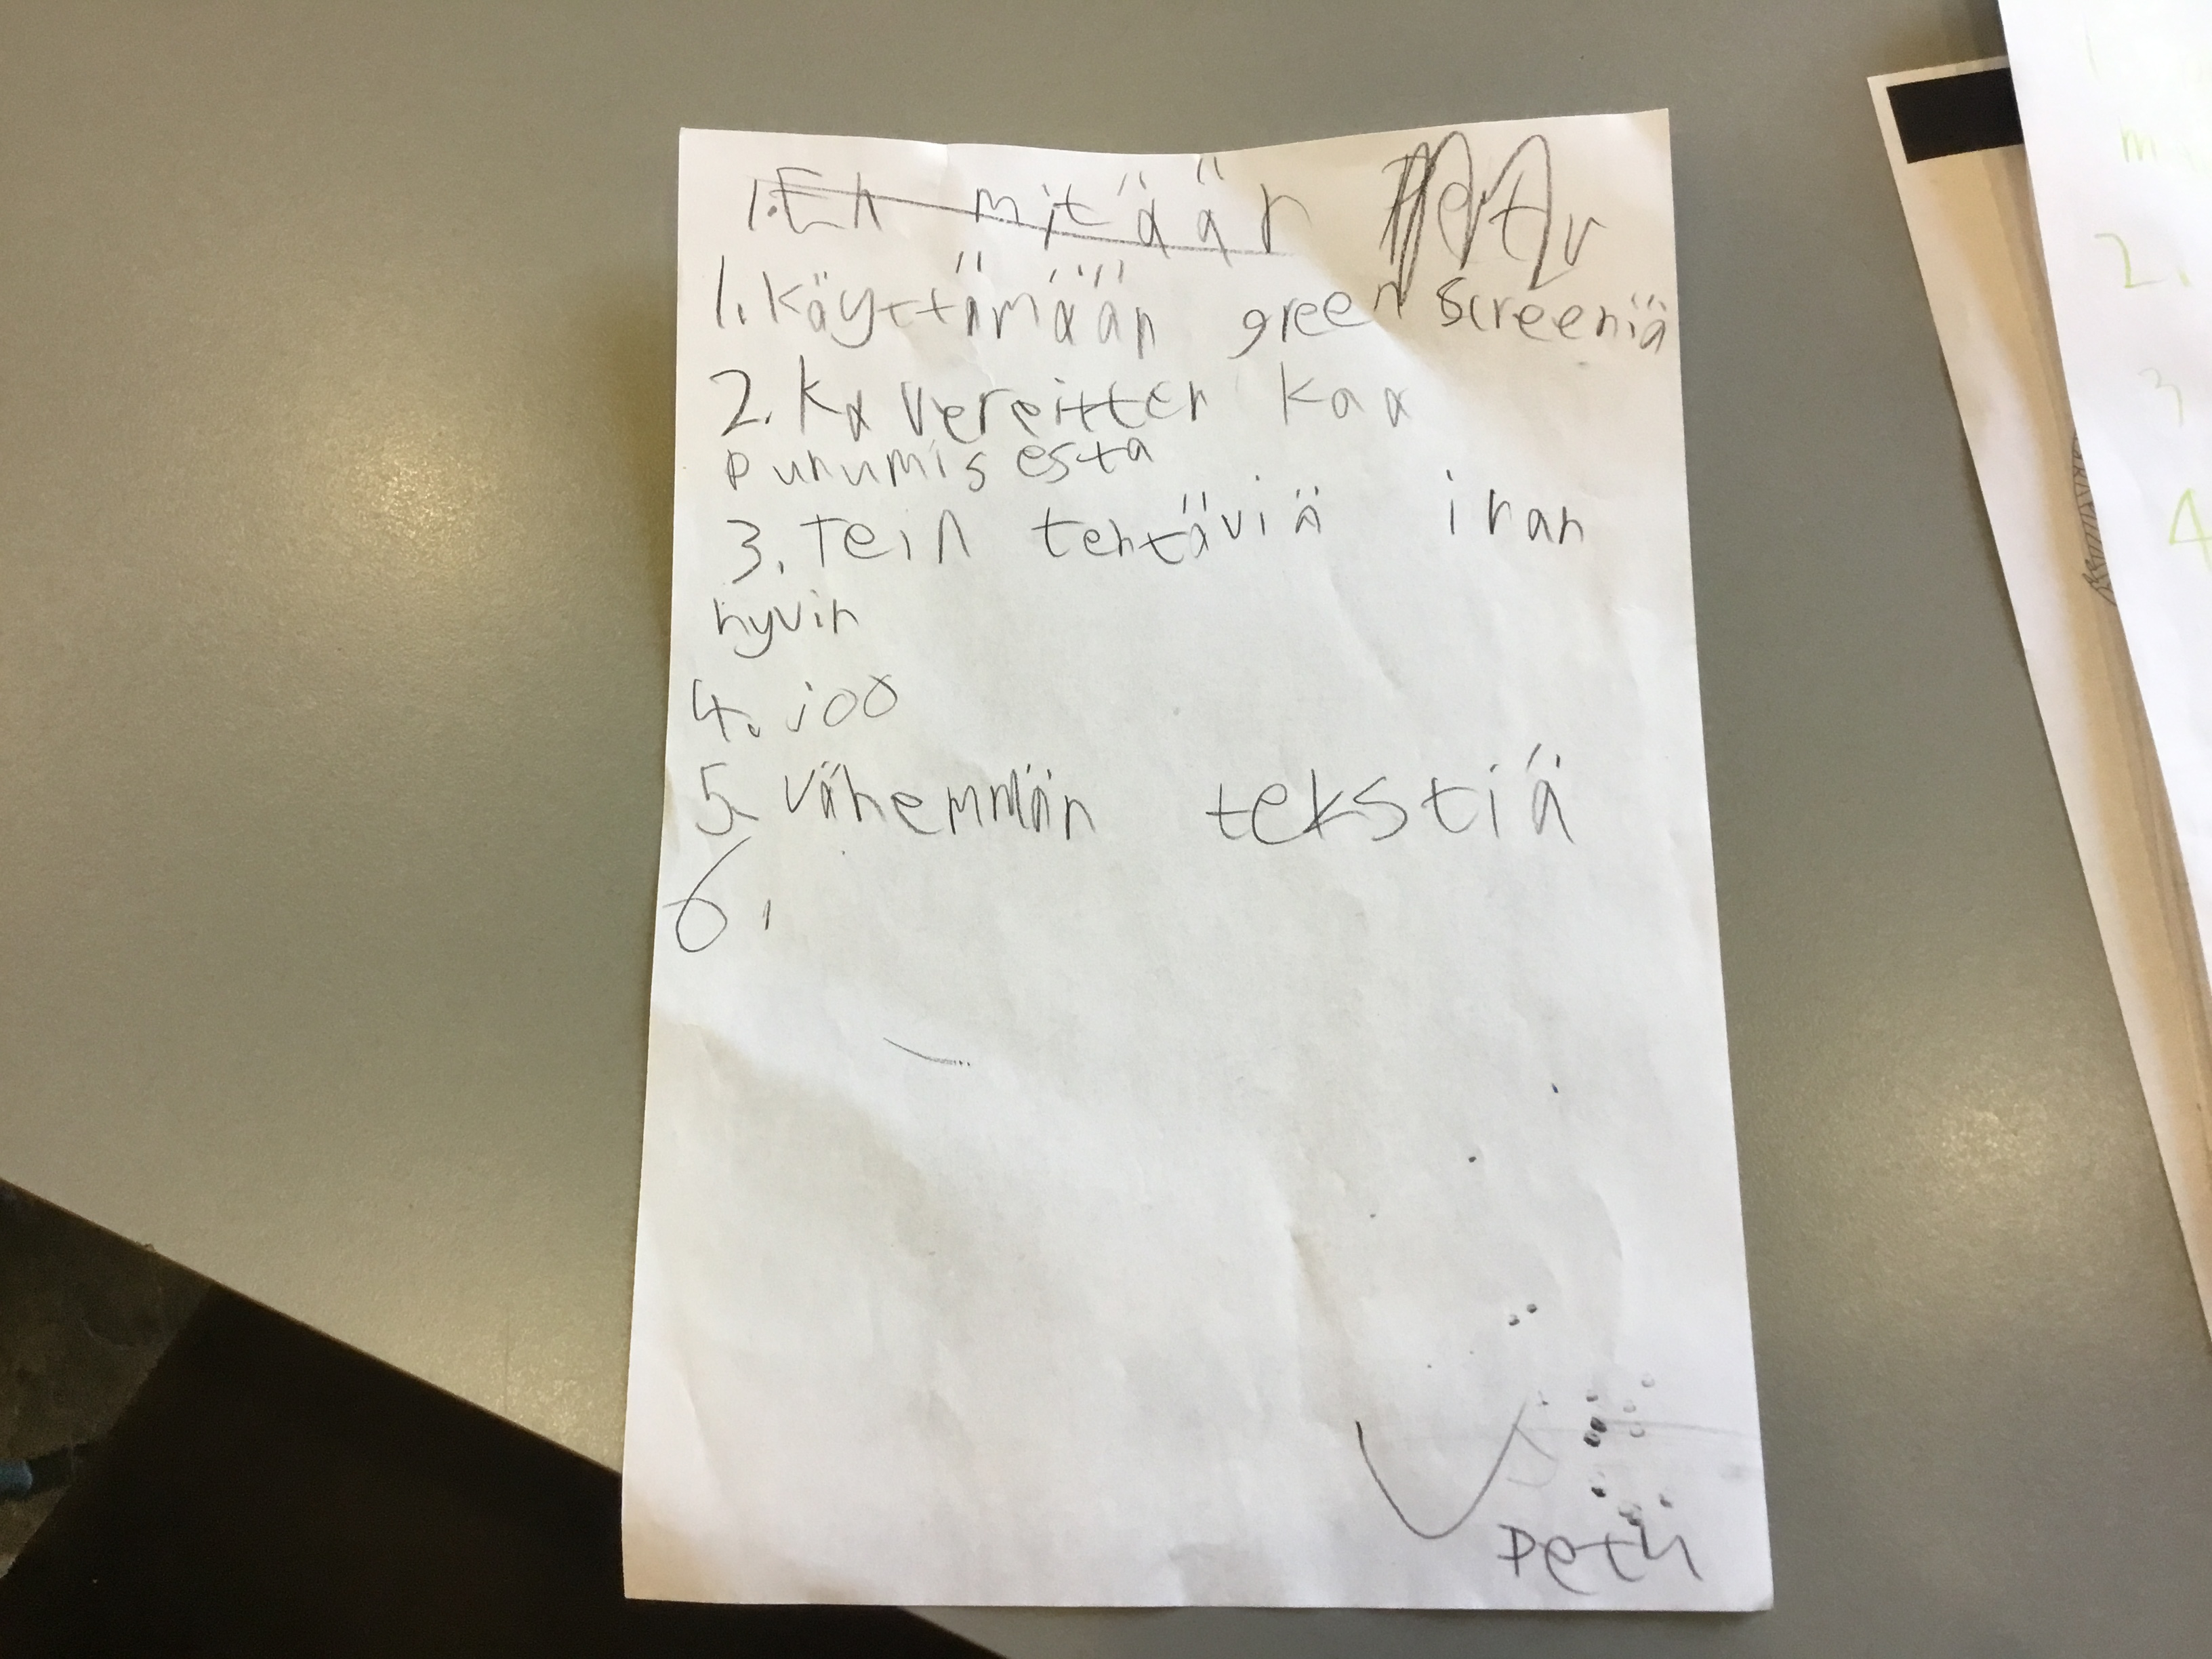 1. En mitään
1. Käyttämään green screeniä
2. Kavereitten kaa
puhumisesta
3. Tein tehtäviä ihan
hyvin
4. joo
5. Vähemmän tekstiä
6.
2.
3
4